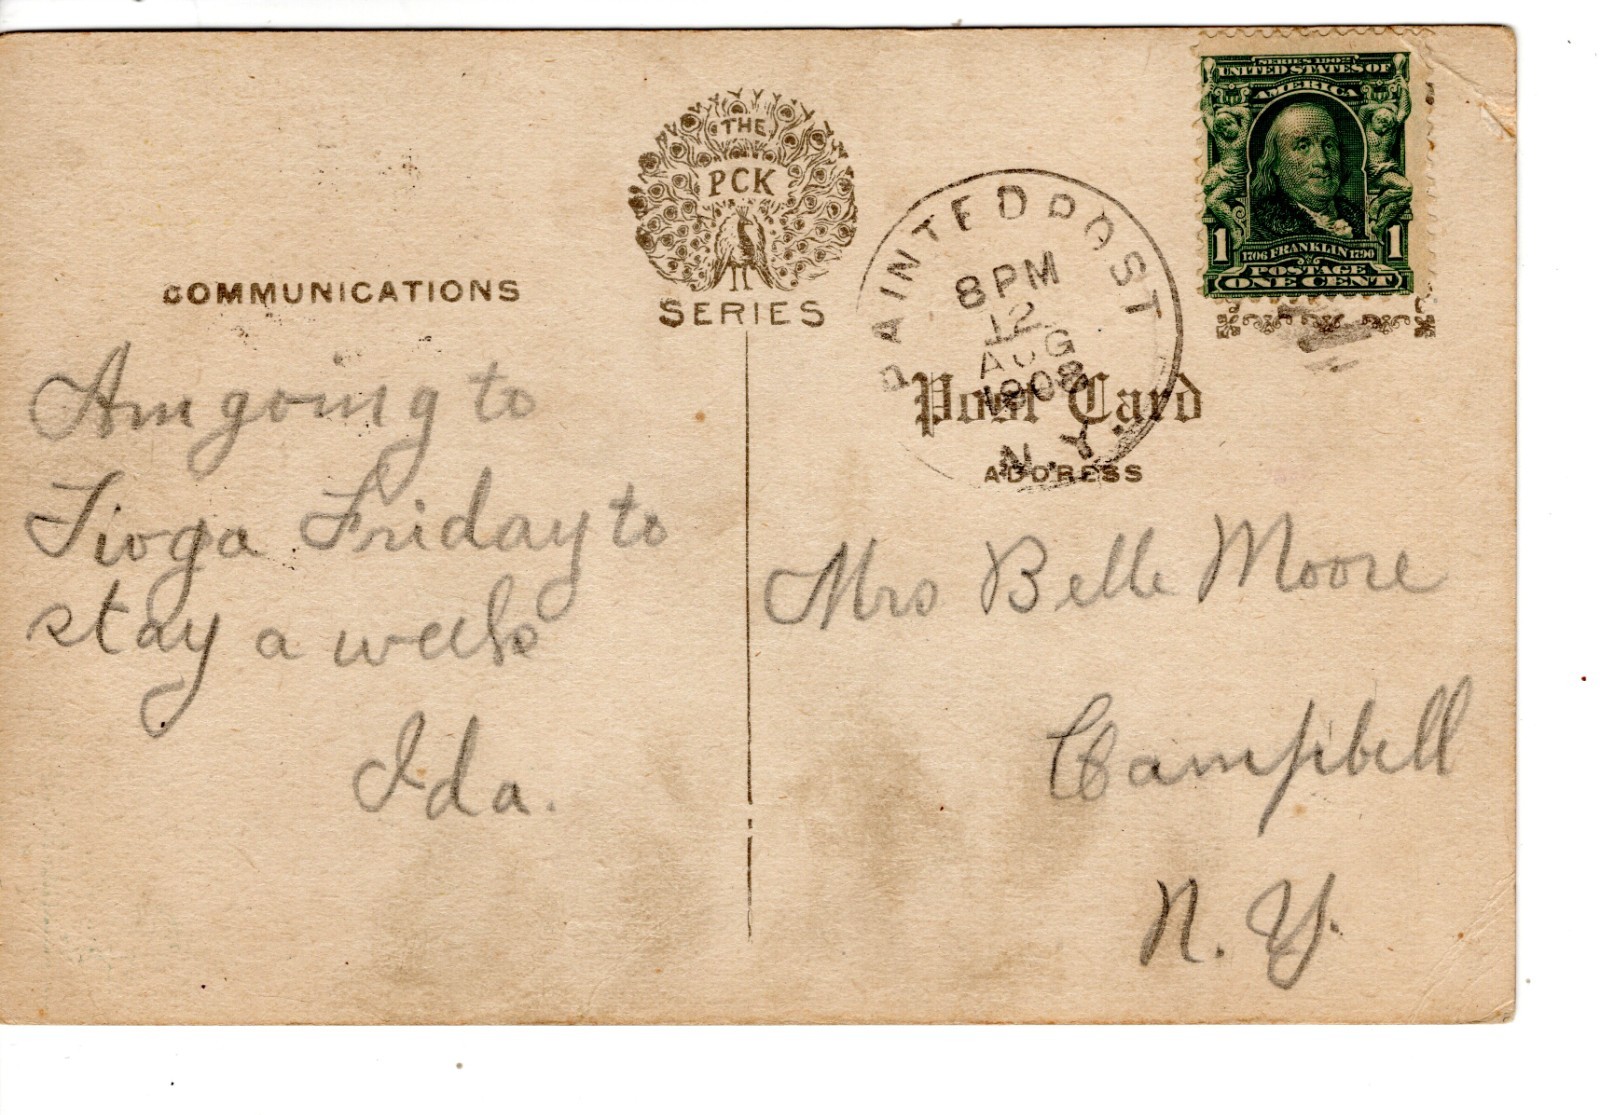 THE
PCK
SERIES
COMMUNICATIONS
Am going to
Tioga Friday to
stay a week
Ida.
PAINTED POST
8 PM
12
AUG
1908
N.Y.
SERIES 1902
UNITED STATES OF
AMERICA
1 1
1706 FRANKLIN 1790
POSTAGE
ONE CENT
Post Card
ADDRESS
Mrs Belle Moore
Campbell
N.Y.